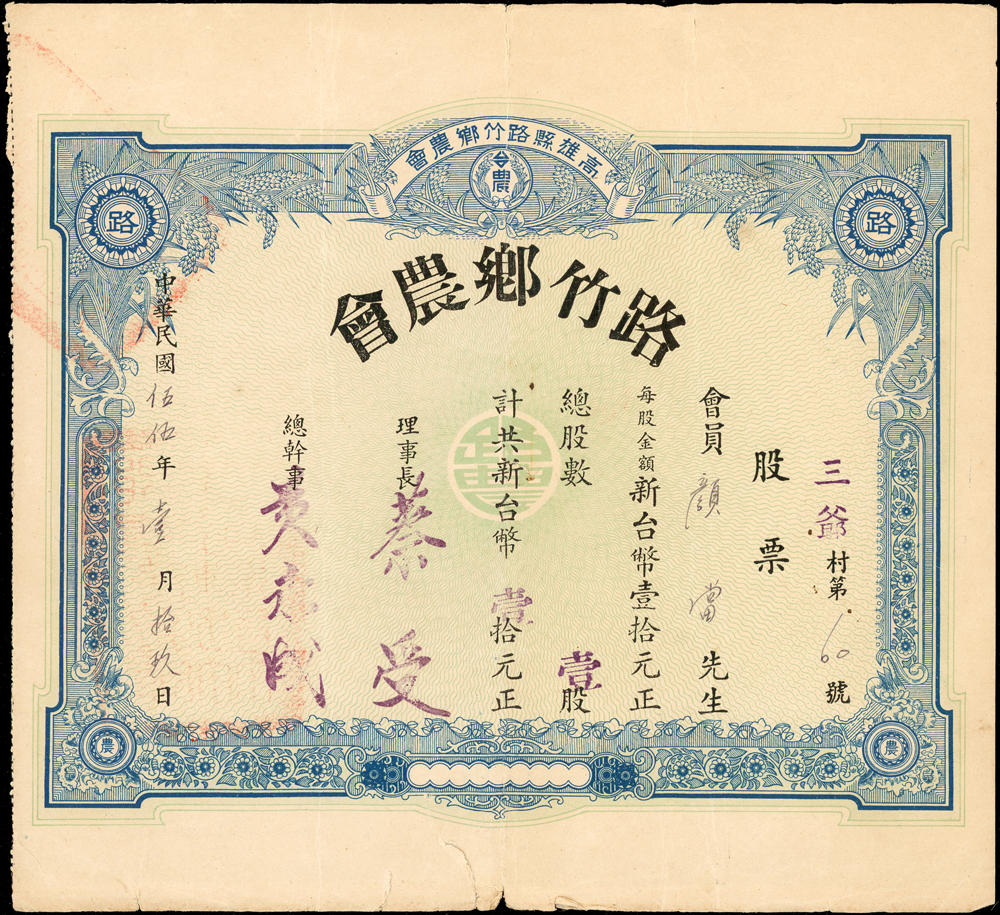 高雄縣路竹鄉農會
台農
路
路
路竹鄉農會
三爺村第160號
股票
會員 顏 先生
每股金額新台幣壹拾元正
總股數 壹股
計共新台幣壹拾元正
理事長 蔡受
總幹事 黃
中華民國伍伍年壹月拾玖日
農
農